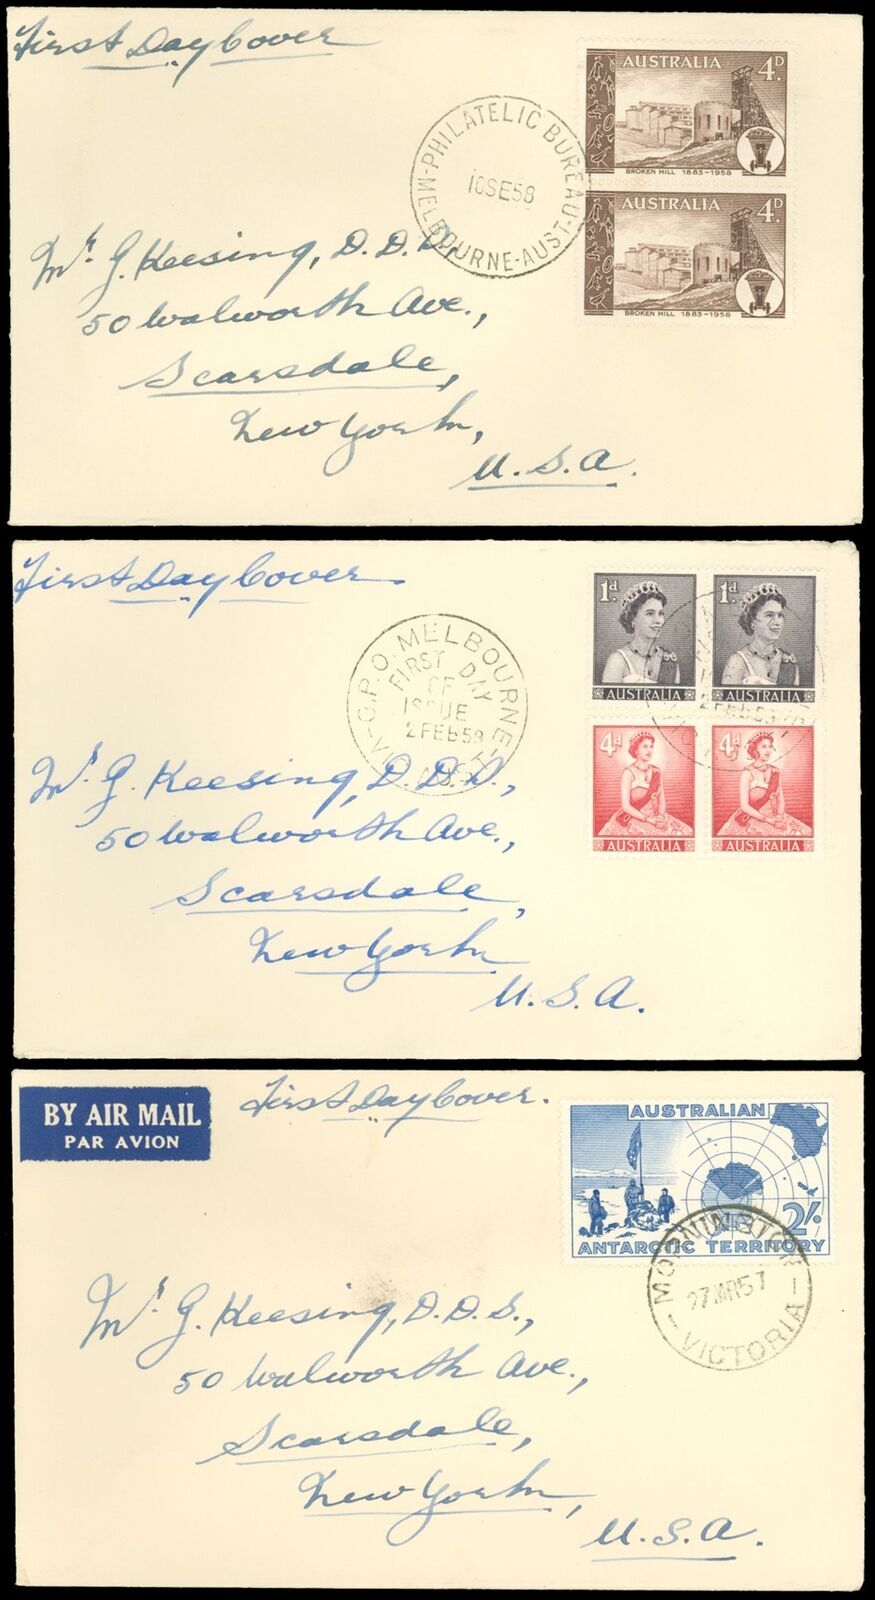 First Day Cover
AUSTRALIA 4D.
BROKEN HILL 1883-1958
AUSTRALIA 4D.
BROKEN HILL 1883-1958
PHILATELIC BUREAU
10SE58
MELBOURNE-AUST
Mr. G. Keesing, D.D.S.,
50 Walworth Ave.,
Scarsdale,
New York,
U.S.A.
First Day Cover.
1d. 1d.
AUSTRALIA AUSTRALIA
4d 4d
AUSTRALIA AUSTRALIA
G.P.O. MELBOURNE
FIRST DAY
OF
ISSUE
2 FEB 59
2 FEB 59
Mr. G. Keesing, D.D.S.,
50 Walworth Ave.,
Scarsdale,
New York
U.S.A.
BY AIR MAIL
PAR AVION
First Day Cover.
AUSTRALIAN
2/-
ANTARCTIC TERRITORY
MORNINGTON
27 MR 57
VICTORIA
Mr. G. Keesing, D.D.S.,
50 Walworth Ave.,
Scarsdale,
New York,
U.S.A.